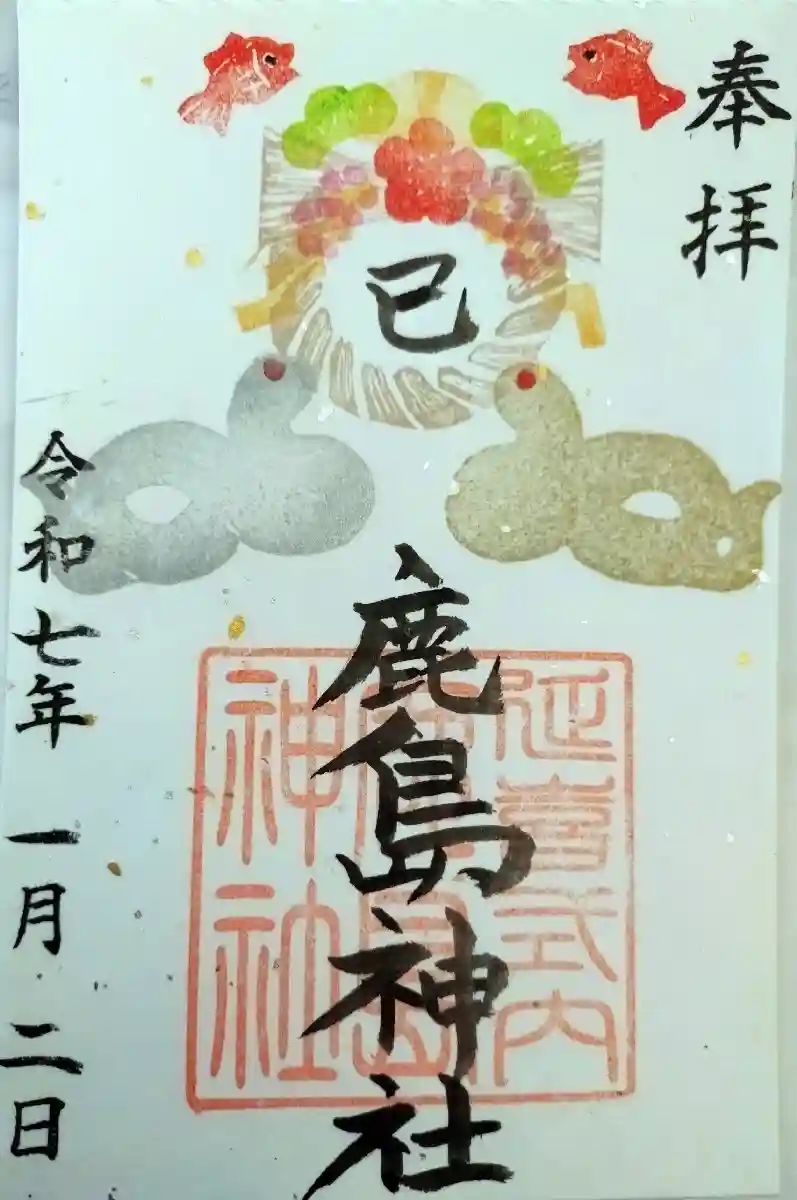 奉拝
巳
鹿島神社
延喜式内
鹿島
神社
令和七年一月二日